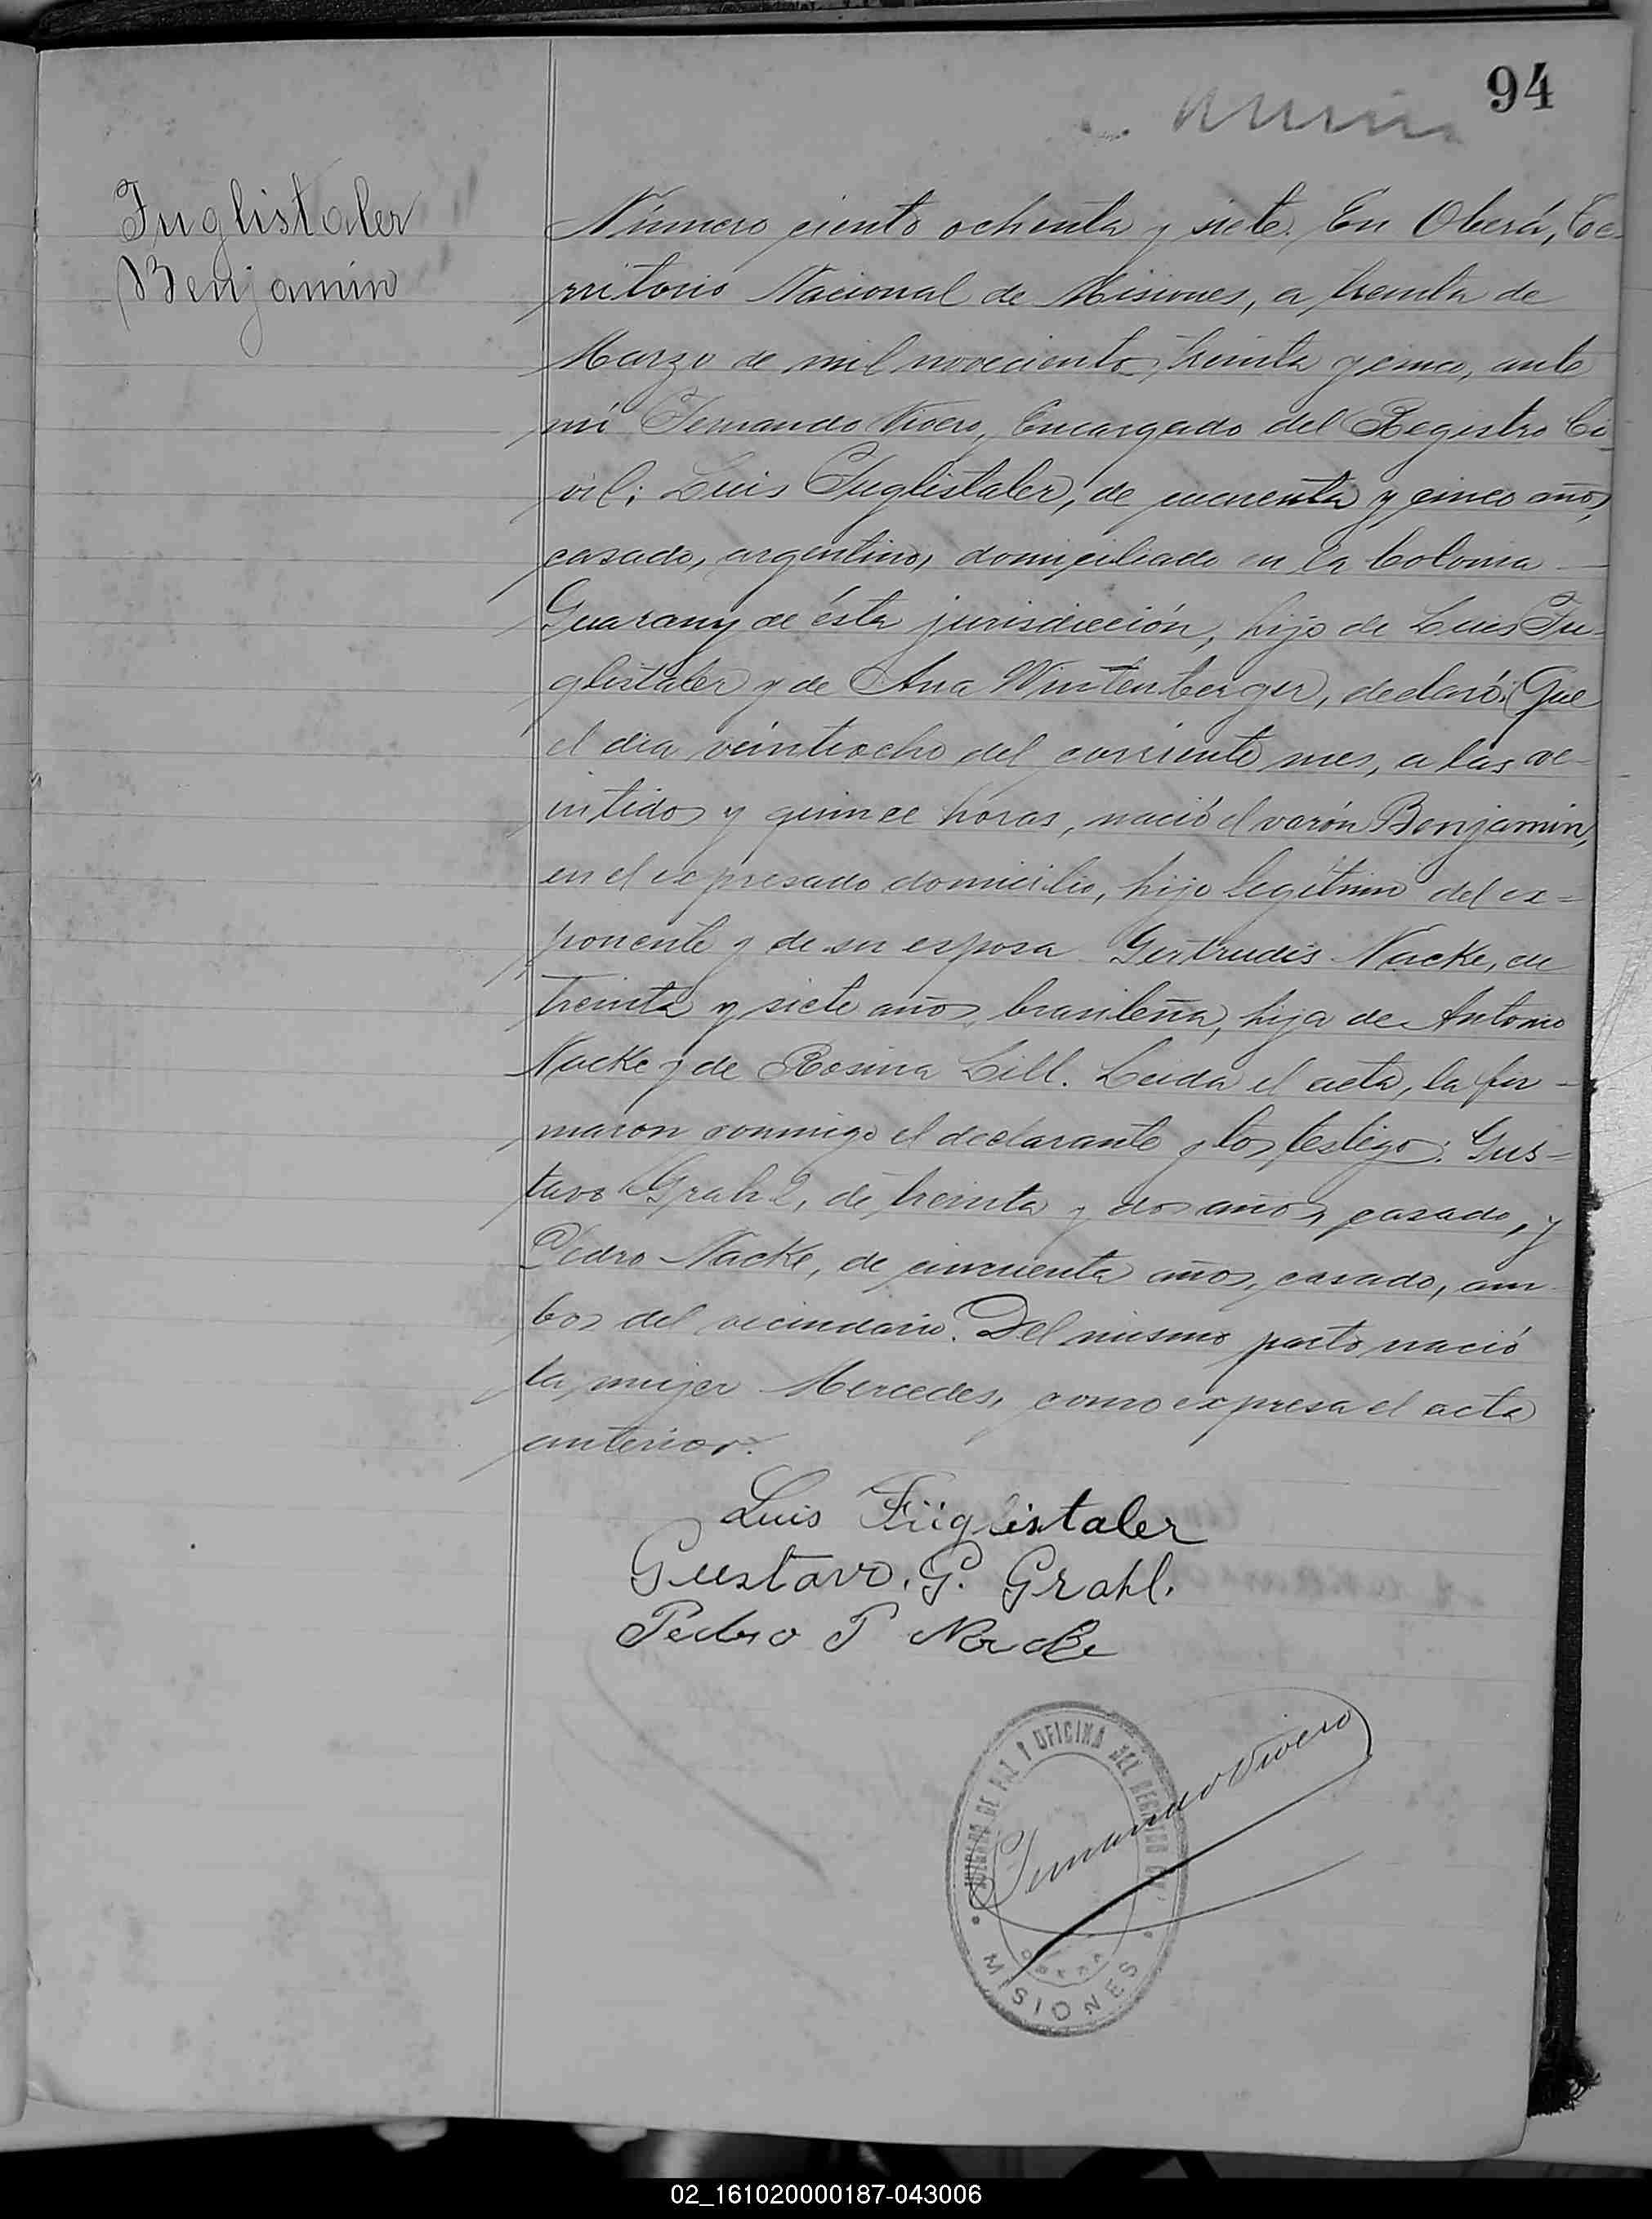 94
Fuglistaler
Benjamin
Número ciento ochenta y siete. En Oberá, Te-
rritorio Nacional de Misiones, a treinta de
Marzo de mil novecientos treinta y cinco, ante
mí Fernando Vivero, Encargado del Registro Ci-
vil; Luis Fuglistaler, de cuarenta y cinco años,
casado, argentino, domiciliado en la Colonia
Guarany de ésta jurisdicción, hijo de Luis Fu-
glistaler y de Ana Wintenberger, declaró: Que
el dia veintiocho del corriente mes, a las ve-
intidos y quince horas, nació el varón Benjamin,
en el expresado domicilio, hijo legítimo del ex=
ponente y de su esposa Gertrudis Nacke, de
treinta y siete años, brasileña, hija de Antonio
Nacke y de Rosina Lill. Leida el acta, la fir-
maron conmigo el declarante y los testigos: Gus-
tavo Grahl, de treinta y dos años, casado, y
Pedro Nacke, de cincuenta años, casado, am-
bos del vecindario. Del mismo parto nació
la mujer Mercedes, como expresa el acta
anterior.
Luis Füglistaler
Gustavo. G. Grahl.
Pedro P Nacke
Fernando Vivero
JUZGADO DE PAZ Y OFICINA DEL REGISTRO
OBERA
MISIONES
02_161020000187-043006